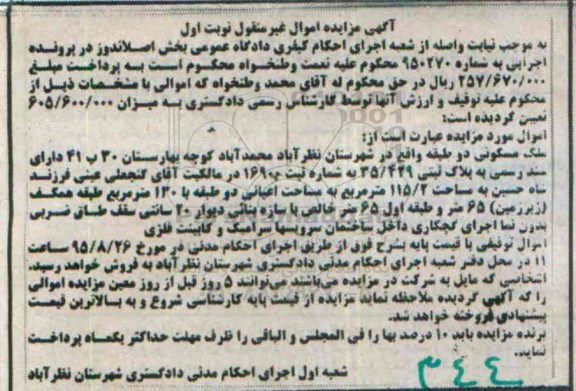 آگهی مزایده اموال غیرمنقول نوبت اول
به موجب نیابت واصله از شعبه اجرای احکام کیفری دادگاه عمومی بخش اصلاندوز در پرونده
اجرایی به شماره ۹۵۰۲۷۰ محکوم علیه نعمت وطنخواه محکوم است به پرداخت مبلغ
۲۵۷/۶۷۰/۰۰۰ ریال در حق محکوم له آقای محمد وطنخواه که اموالی با مشخصات ذیل از
محکوم علیه توقیف و ارزش آنها توسط کارشناس رسمی دادگستری به میزان ۶۰۵/۶۰۰/۰۰۰
تعیین گردیده است:
اموال مورد مزایده عبارت است از:
ملک مسکونی دو طبقه واقع در شهرستان نظرآباد محمدآباد کوچه بهارستان ۳۰ پ ۴۱ دارای
سند رسمی به پلاک ثبتی ۳۵/۴۲۹ به شماره ثبت ۱۶۹۰۰ در مالکیت آقای گنجعلی عینی فرزند
شاه حسین به مساحت ۱۱۵/۲ مترمربع به مساحت اعیانی دو طبقه با ۱۳۰ مترمربع طبقه همکف
(زیرزمین) ۶۵ متر و طبقه اول ۶۵ متر خالص با سازه بنایی دیوار ۲۰ سانتی سقف طاق ضربی
بدون نما اجرای گچکاری داخل ساختمان سرویسها سرامیک و کابینت فلزی
اموال توقیفی با قیمت پایه بشرح فوق از طریق اجرای احکام مدنی در مورخ ۹۵/۸/۲۶ ساعت
۱۱ در محل دفتر شعبه اجرای احکام مدنی دادگستری شهرستان نظرآباد به فروش خواهد رسید.
اشخاصی که مایل به شرکت در مزایده می‌باشند می‌توانند ۵ روز قبل از روز معین مزایده اموالی
را که آگهی گردیده ملاحظه نماید مزایده از قیمت پایه کارشناسی شروع و به بالاترین قیمت
پیشنهادی فروخته خواهد شد.
برنده مزایده باید ۱۰ درصد بها را فی المجلس و الباقی را ظرف مهلت حداکثر یکماه پرداخت
نماید.
شعبه اول اجرای احکام مدنی دادگستری شهرستان نظرآباد
۳۴۴